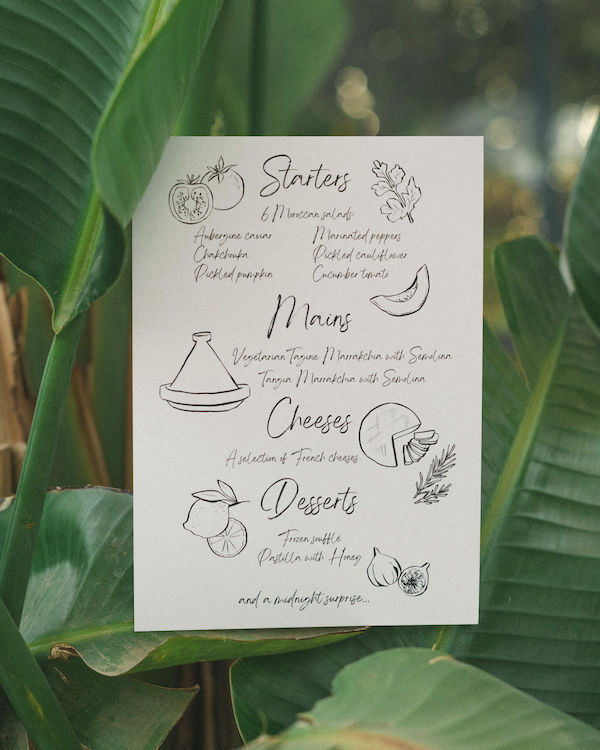 Starters
6 Moroccan salads:
Aubergine caviar
Marinated peppers
Chakchouka
Pickled cauliflower
Pickled pumpkin
Cucumber tomato
Mains
Vegetarian Tagine Marrakchia with Semolina
Tangia Marrakchia with Semolina
Cheeses
A selection of French cheeses
Desserts
Frozen soufflé
Pastilla with Honey
and a midnight surprise...